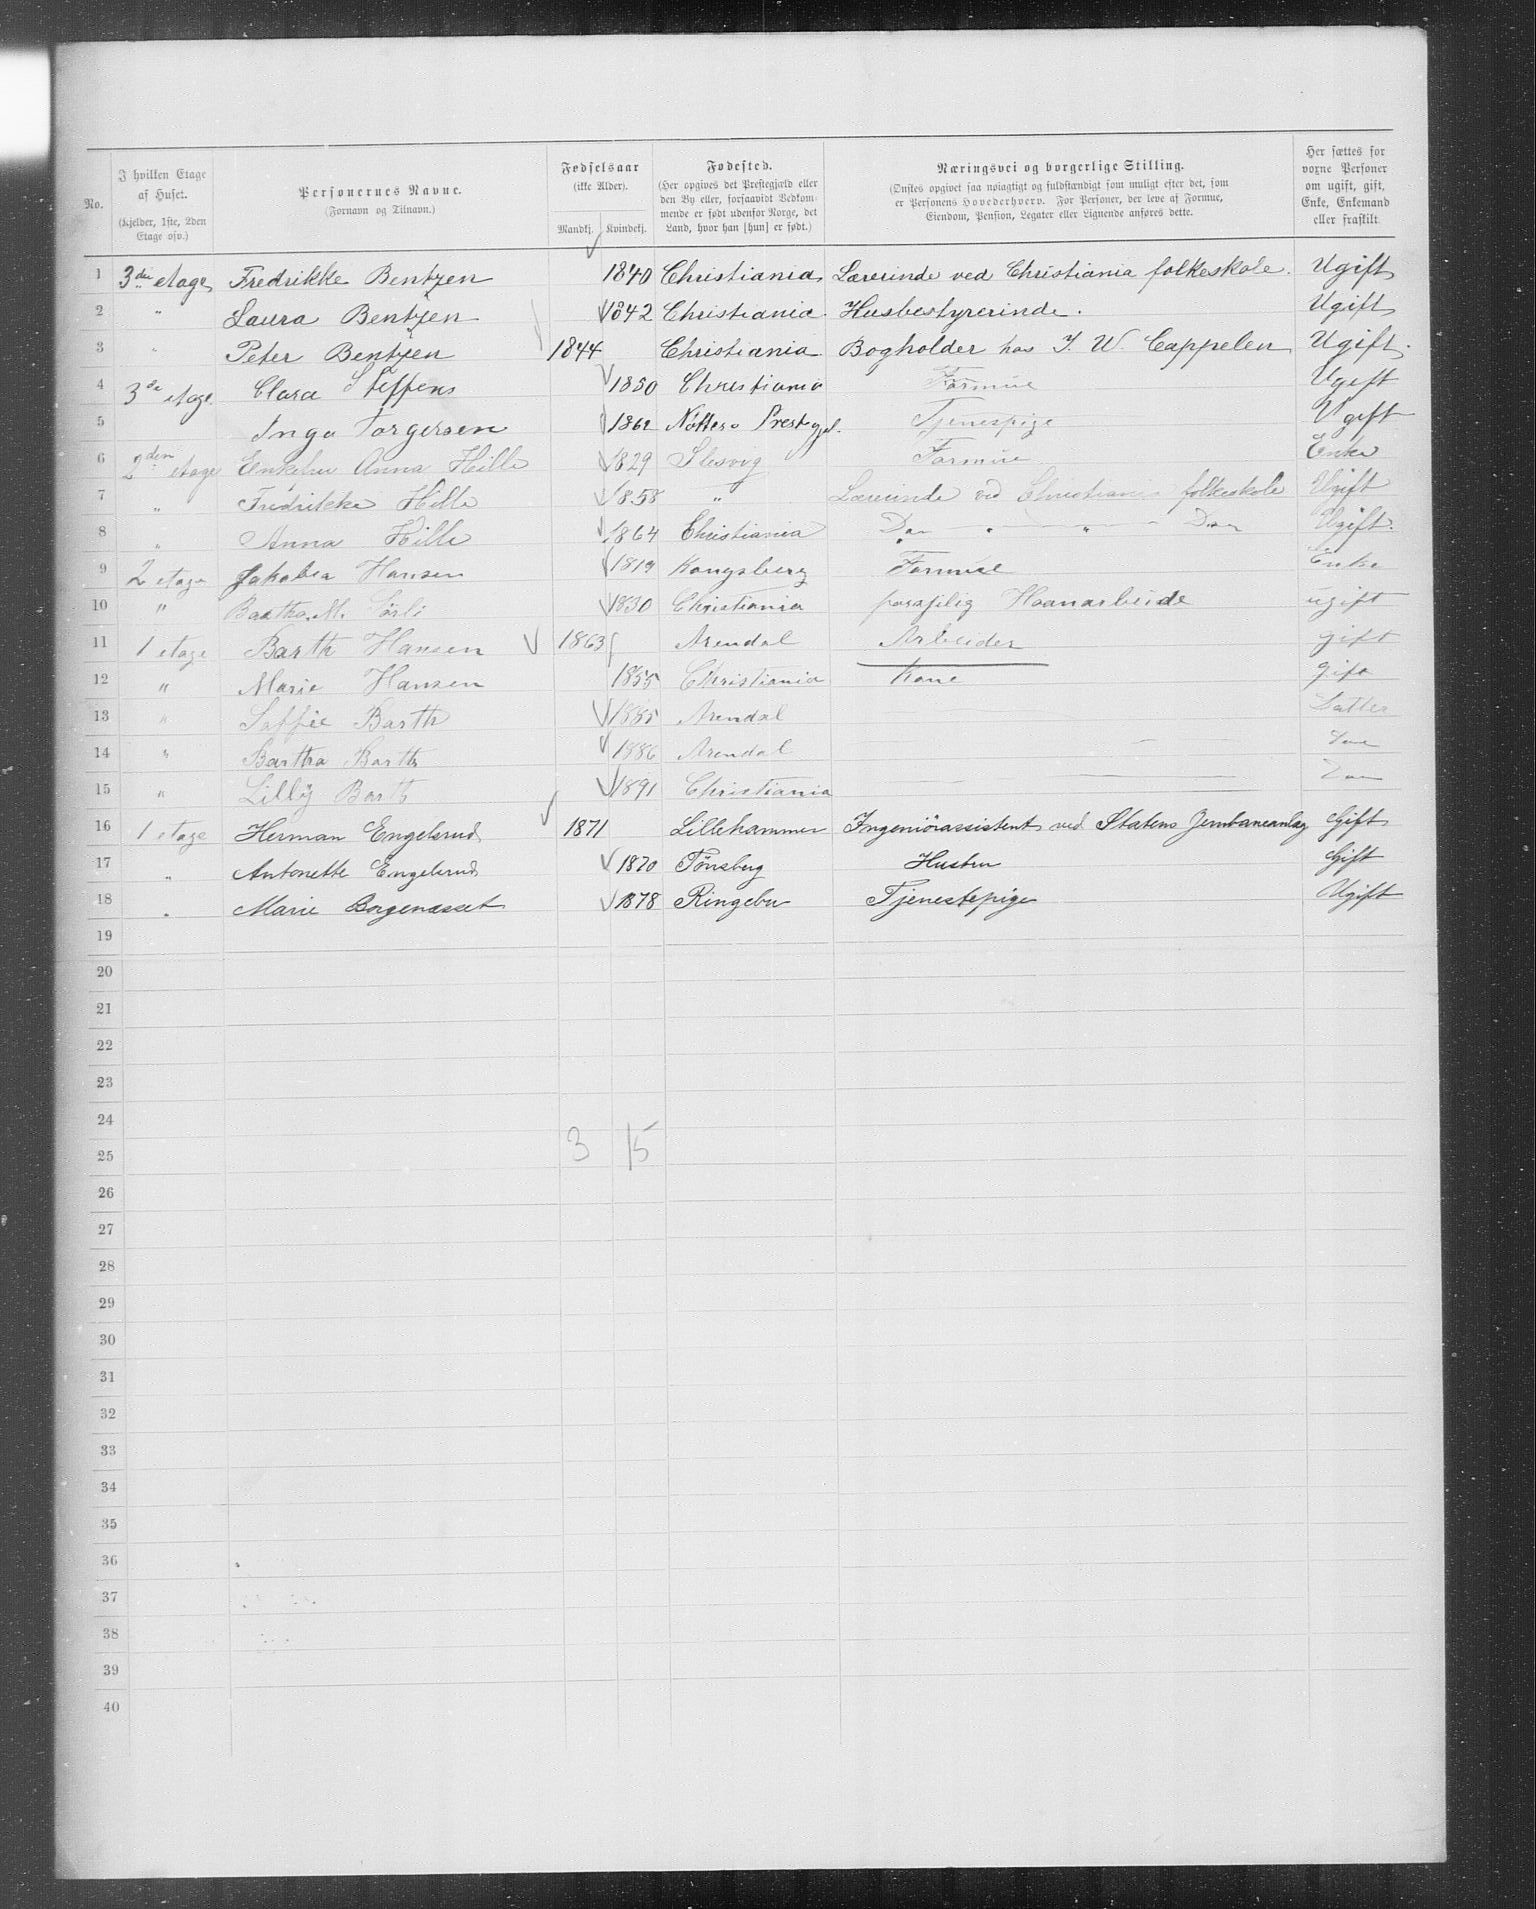 No.
I hvilken Etage af Huset. (Kjelder, 1ste, 2den Etage osv.)
Personernes Navne. (Fornavn og Tilnavn.)
Fødselsaar (ikke Alder). Mandkj. Kvindekj.
Fødested. (Her opgives det Prestegjæld eller den By eller, forsaavidt Vedkommende er født udenfor Norge, det Land, hvor han [hun] er født.)
Næringsvei og borgerlige Stilling. (Ønskes opgivet saa nøiagtigt og fuldstændigt som muligt efter det, som er Personens Hovederhverv. For Personer, der leve af Formue, Eiendom, Pension, Legater eller Lignende anføres dette.
Her sættes for voxne Personer om ugift, gift, Enke, Enkemand eller fraskilt.
1 3die etage Fredrikke Bentzen 1840 Christiania Lærerinde ved Christiania folkeskole. Ugift
2 " Laura Bentzen 1842 Christiania Husbestyrerinde. Ugift
3 " Peter Bentzen 1844 Christiania Bogholder hos J. W. Cappelen Ugift.
4 3de etage Clara Steffens 1850 Christiania Formue Ugift
5 Inga Torgersen Nøtterø Prestegjel. Tjenespige Ugift
6 2den etage Enkefru Anna Hille 1829 Slesvig Formue Enke
7 " Fredrikke Hille 1858 " Lærerinde ved Christiania folkeskole Ugift
8 " Anna Hille 1864 Christiania Do " Do Ugift.
9 2 etage Jakobea Hansen 1819 Kongsberg Formue Enke
10 " M. Sørli 1830 Christiania Haanarbeide ugift
11 1 etage Barth Hansen 1863 Arendal Arbeider gift
12 " Marie Hansen 1855 Christiania Kone gift
13 " Soffie Barth 1885 Arendal Datter
14 " Bartha Barth 1886 Arendal Do
15 " Lilly Barth 1891 Christiania Do
16 1 etage Herman Engelsrud 1871 Lillehammer Ingeniørassistent ved Statens Jernbaneanlæg Gift
17 " Antonette Engelsrud 1870 Tønsberg Hustru Gift
18 " Marie Borgenasset 1878 Ringebu Tjenestepige Ugift
19
20
21
22
23
24
3 15
25
26
27
28
29
30
31
32
33
34
35
36
37
38
39
40